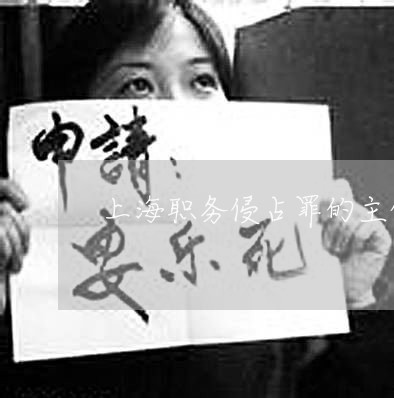 申請：
上海职务侵占罪的主
安乐死